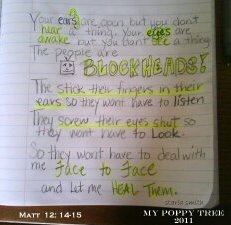 Your ears are open but you don't
hear a thing. Your eyes are
awake but you don't see a thing
The people are
BLOCKHEADS!
The stick their fingers in their
ears so they wont have to listen
They screw their eyes shut so
they wont have to Look.
So they wont have to deal with
me face to face
and let me HEAL Them.
starla smith
MATT 12: 14-15
MY POPPY TREE
2011